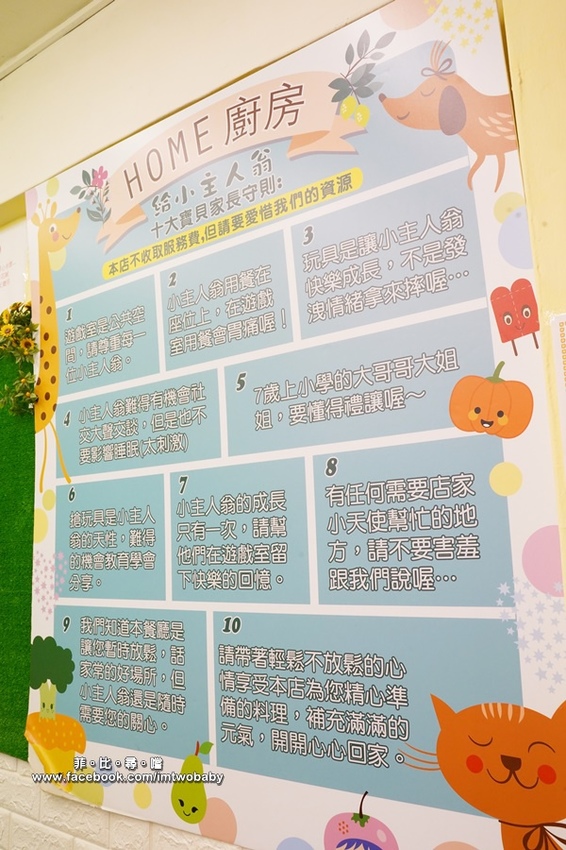 HOME 廚房
給小主人翁
十大寶貝家長守則:
本店不收取服務費,但請要愛惜我們的資源
1
遊戲室是公共空
間，請尊重每一
位小主人翁。
2
小主人翁用餐在
座位上，在遊戲
室用餐會胃痛喔！
3
玩具是讓小主人翁
快樂成長，不是發
洩情緒拿來摔喔…
4
小主人翁難得有機會社
交大聲交談，但是也不
要影響睡眠(太刺激)
5
7歲上小學的大哥哥大姐
姐，要懂得禮讓喔～
6
搶玩具是小主人
翁的天性，難得
的機會教育學會
分享。
7
小主人翁的成長
只有一次，請幫
他們在遊戲室留
下快樂的回憶。
8
有任何需要店家
小天使幫忙的地
方，請不要害羞
跟我們說喔…
9
我們知道本餐廳是
讓您暫時放鬆，話
家常的好場所，但
小主人翁還是隨時
需要您的關心。
10
請帶著輕鬆不放鬆的心
情享受本店為您精心準
備的料理，補充滿滿的
元氣，開開心心回家。
菲。比。尋。嚐
www.facebook.com/imtwobaby